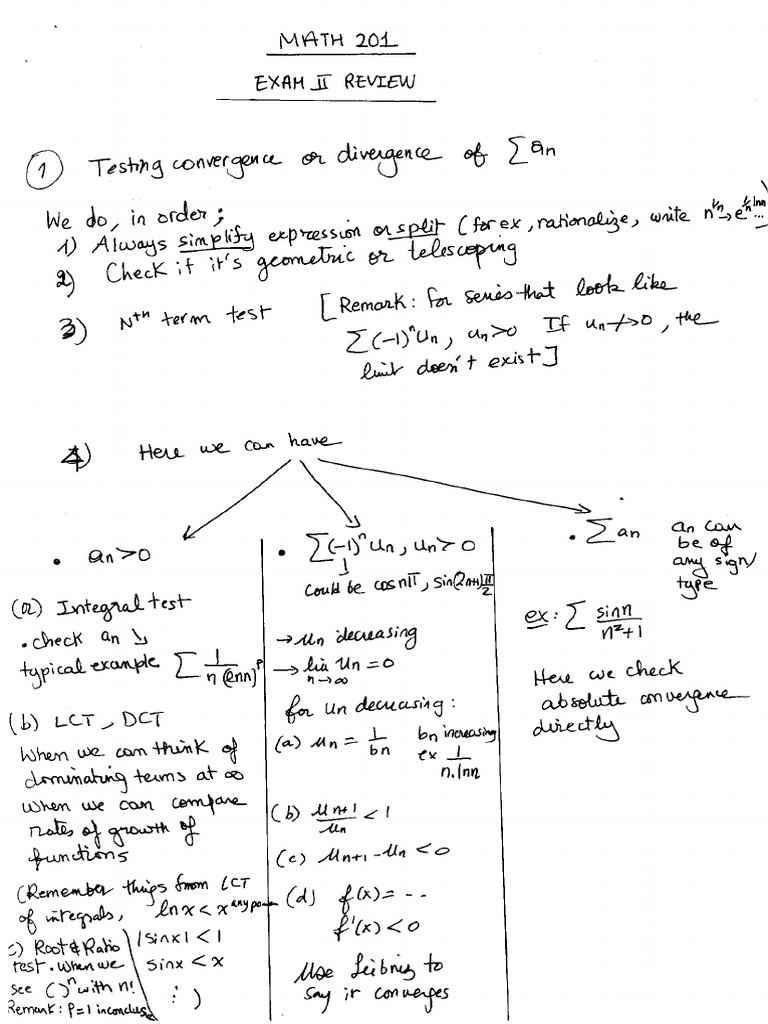 MATH 201
EXAM II REVIEW
① Testing convergence or divergence of ∑ an
We do, in order;
1) Always simplify expression or split (for ex, rationalize, write n^{1/n} → e^{1/n lnn}...)
2) Check if it's geometric or telescoping
3) Nth term test [Remark: for series that look like
∑(-1)^n Un, un>0 If un↛0, the
limit doesn't exist]
4) Here we can have
• an>0
(a) Integral test
• check an ↘
typical example ∑ 1/(n(lnn)^p)
(b) LCT, DCT
When we can think of
dominating terms at ∞
when we can compare
rates of growth of
functions
(Remember things from LCT
of integrals, lnx < x^{any power}
|sinx| < 1
sinx < x
⋮ )
c) Root & Ratio
test. When we
see ( )^n with n!
Remark: ρ=1 inconclus.
• ∑(-1)^n Un, Un>0
↓
could be cos nπ, sin(2n+1)π/2
→ Un decreasing
→ lim n→∞ Un = 0
for Un decreasing:
(a) un = 1/bn bn increasing
ex 1/(n.lnn)
(b) Un+1/Un < 1
(c) Un+1 - Un < 0
(d) f(x) = --
f'(x) < 0
Use Leibniz to
say it converges
• ∑ an an can
be of
any sign/
type
ex: ∑ sinn/(n²+1)
Here we check
absolute convergence
directly